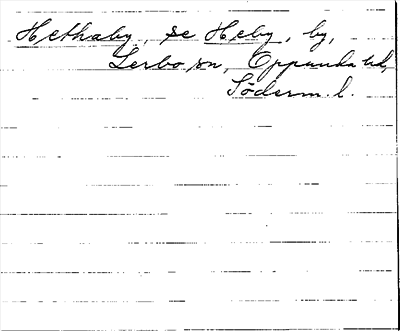 Hethaby, se Heby, by,
Lerbo sn, Oppunda hd,
Söderm. l.